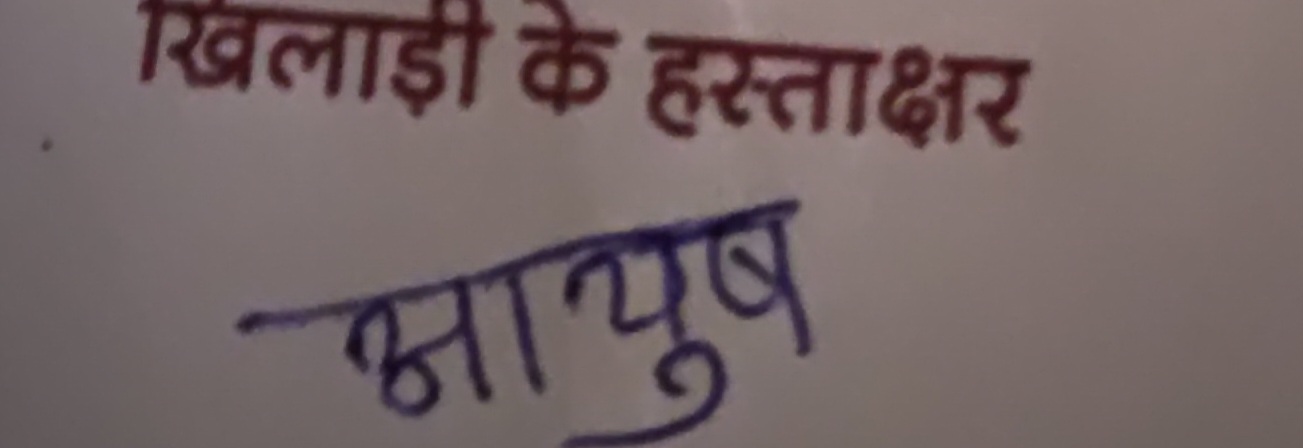 खिलाड़ी के हस्ताक्षर
आयुष